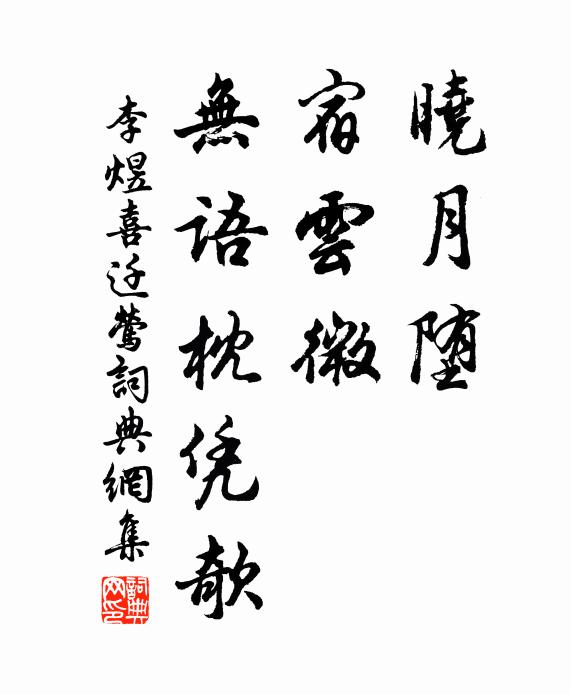 曉月堕
宿雲微
無語枕凭欹
李煜喜迁鶯詞典網集
詞典网印